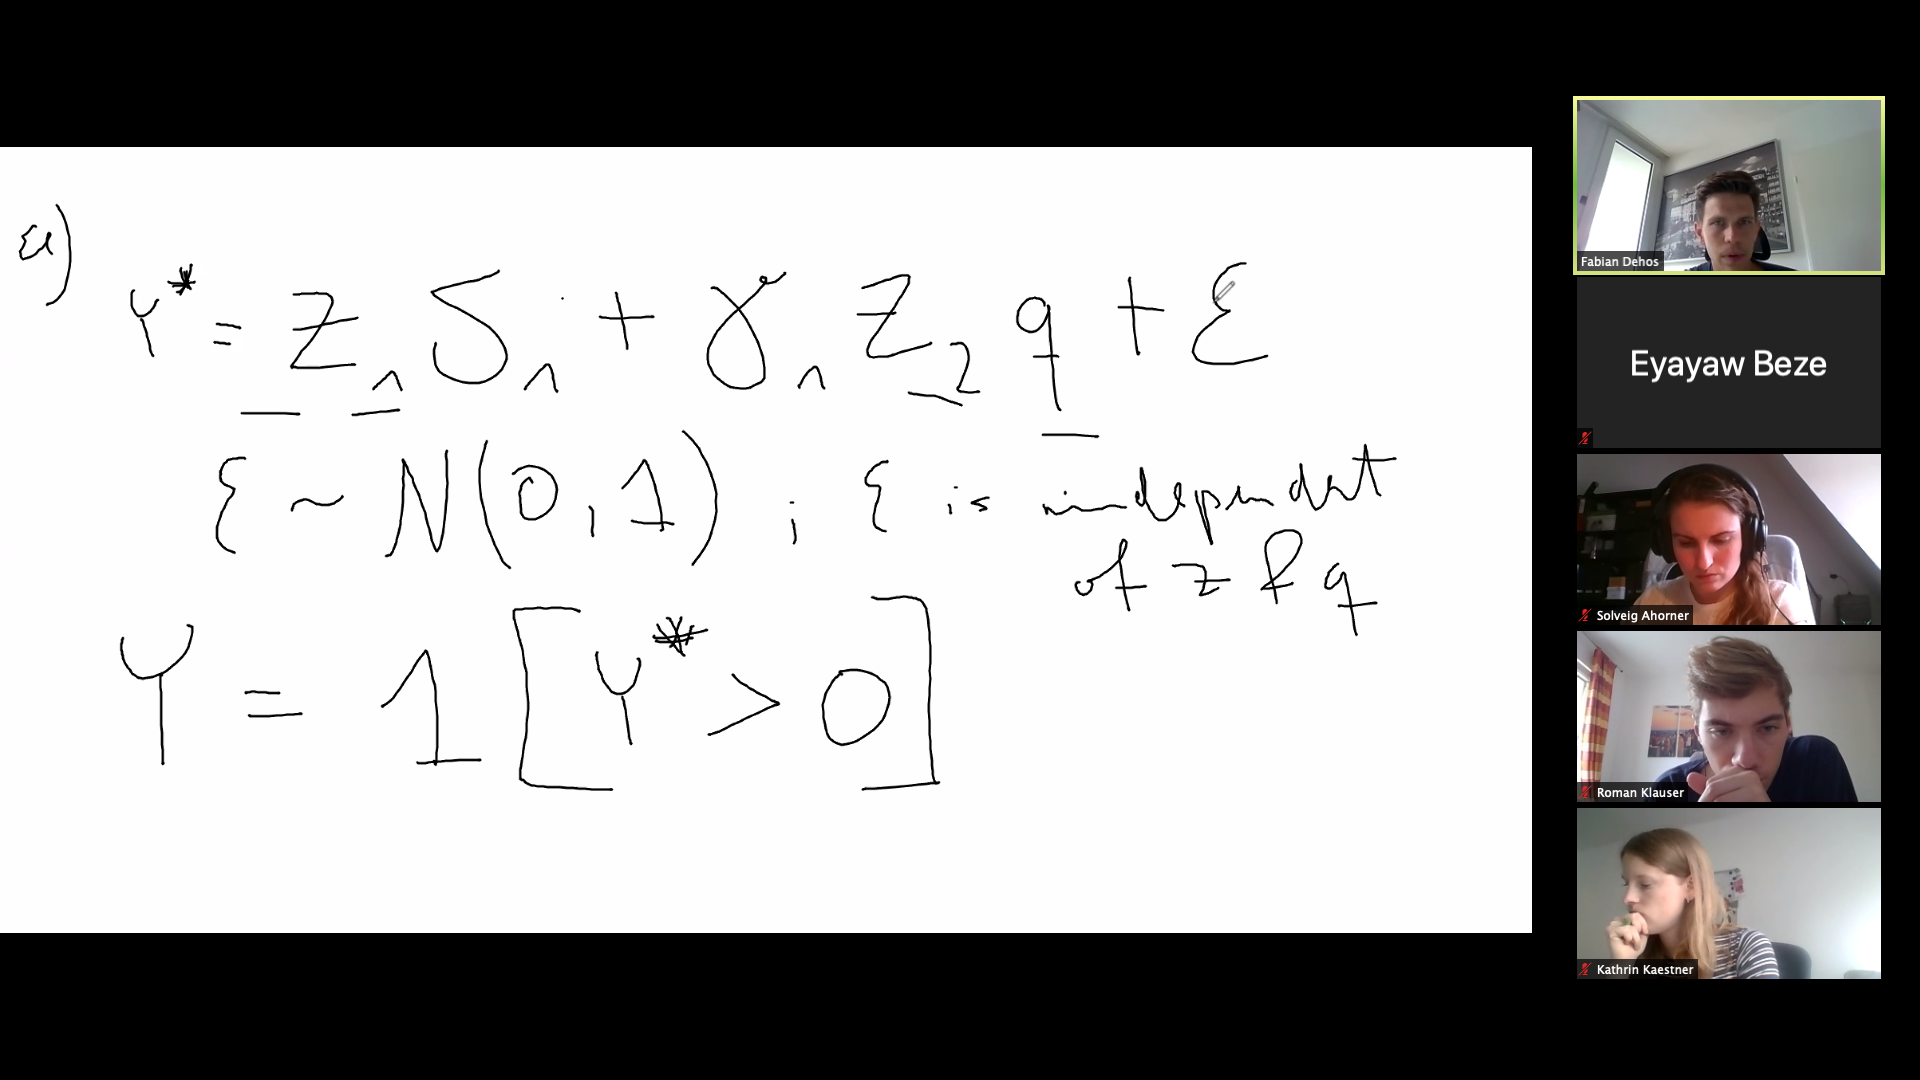 a)
Y* = z₁ δ₁ + γ₁ z₂ q + ε
ε ~ N(0,1) ; ε is independent
of z & q
Y = 1 [Y* > 0]
Fabian Dehos
Eyayaw Beze
Solveig Ahorner
Roman Klauser
Kathrin Kaestner